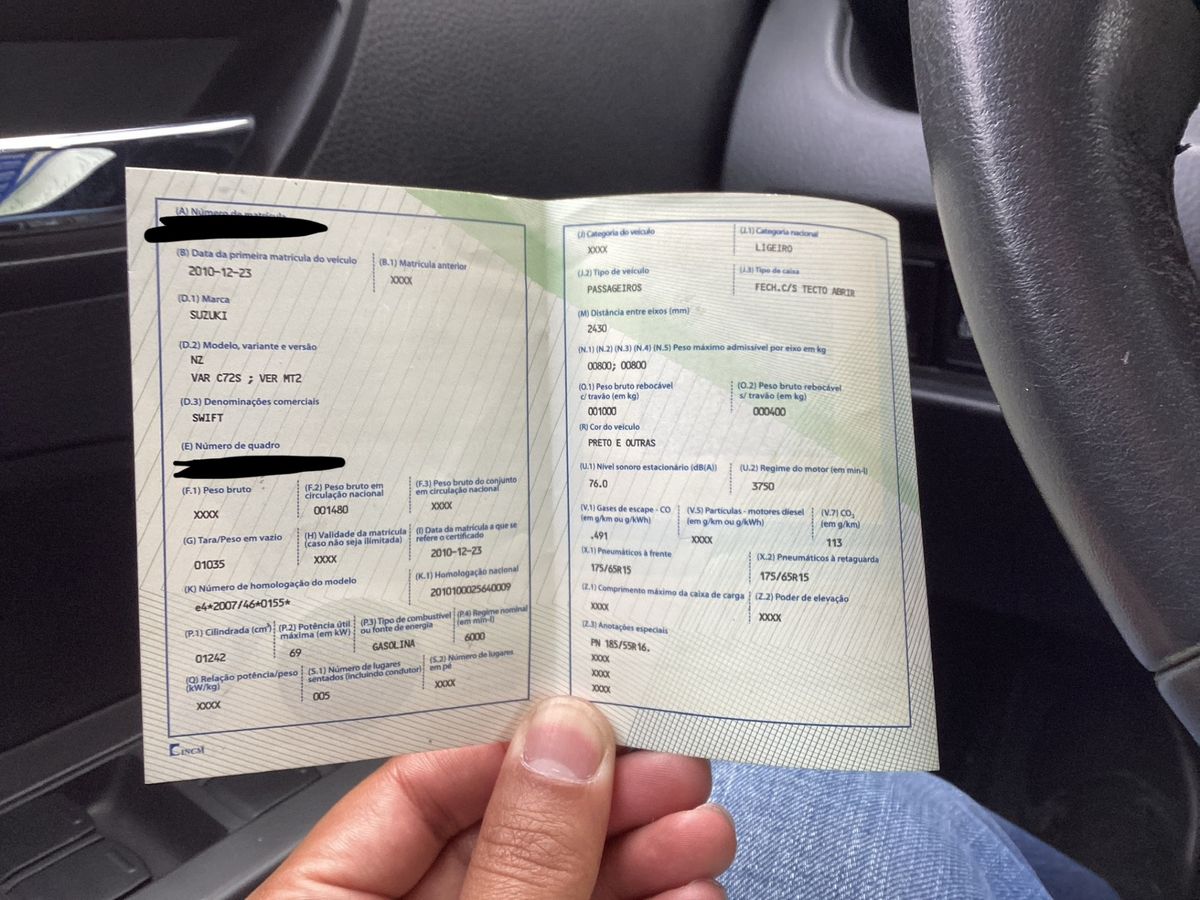 (A) Número de matrícula
(B) Data da primeira matrícula do veículo
2010-12-23
(B.1) Matrícula anterior
XXXX
(D.1) Marca
SUZUKI
(D.2) Modelo, variante e versão
NZ
VAR C72S ; VER MT2
(D.3) Denominações comerciais
SWIFT
(E) Número de quadro
(F.1) Peso bruto
XXXX
(F.2) Peso bruto em
circulação nacional
001480
(F.3) Peso bruto do conjunto
em circulação nacional
XXXX
(G) Tara/Peso em vazio
01035
(H) Validade da matrícula
(caso não seja ilimitada)
XXXX
(I) Data da matrícula a que se
refere o certificado
2010-12-23
(K) Número de homologação do modelo
e4*2007/46*0155*
(K.1) Homologação nacional
2010100025640009
(P.1) Cilindrada (cm³)
01242
(P.2) Potência útil
máxima (em kW)
69
(P.3) Tipo de combustível
ou fonte de energia
GASOLINA
(P.4) Regime nominal
(em min-l)
6000
(Q) Relação potência/peso
(kW/kg)
XXXX
(S.1) Número de lugares
sentados (incluindo condutor)
005
(S.2) Número de lugares
em pé
XXXX
INCM
(J) Categoria do veículo
XXXX
(J.1) Categoria nacional
LIGEIRO
(J.2) Tipo de veículo
PASSAGEIROS
(J.3) Tipo de caixa
FECH.C/S TECTO ABRIR
(M) Distância entre eixos (mm)
2430
(N.1) (N.2) (N.3) (N.4) (N.5) Peso máximo admissível por eixo em kg
00800; 00800
(O.1) Peso bruto rebocável
c/ travão (em kg)
001000
(O.2) Peso bruto rebocável
s/ travão (em kg)
000400
(R) Cor do veículo
PRETO E OUTRAS
(U.1) Nível sonoro estacionário (dB(A))
76.0
(U.2) Regime do motor (em min-l)
3750
(V.1) Gases de escape - CO
(em g/km ou g/kWh)
.491
(V.5) Partículas - motores diesel
(em g/km ou g/kWh)
XXXX
(V.7) CO₂
(em g/km)
113
(X.1) Pneumáticos à frente
175/65R15
(X.2) Pneumáticos à retaguarda
175/65R15
(Z.1) Comprimento máximo da caixa de carga
XXXX
(Z.2) Poder de elevação
XXXX
(Z.3) Anotações especiais
PN 185/55R16.
XXXX
XXXX
XXXX